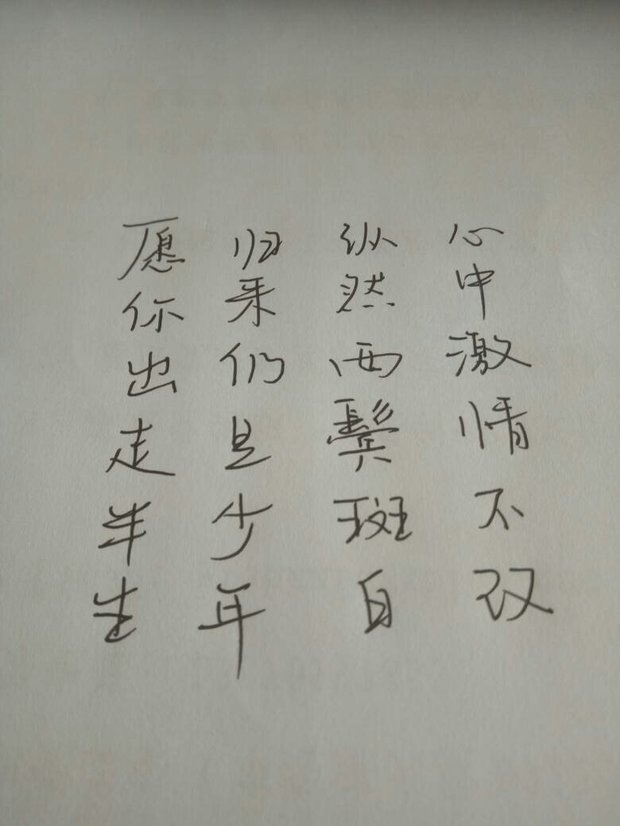 愿你出走半生
归来仍是少年
纵然两鬓斑白
心中激情不改